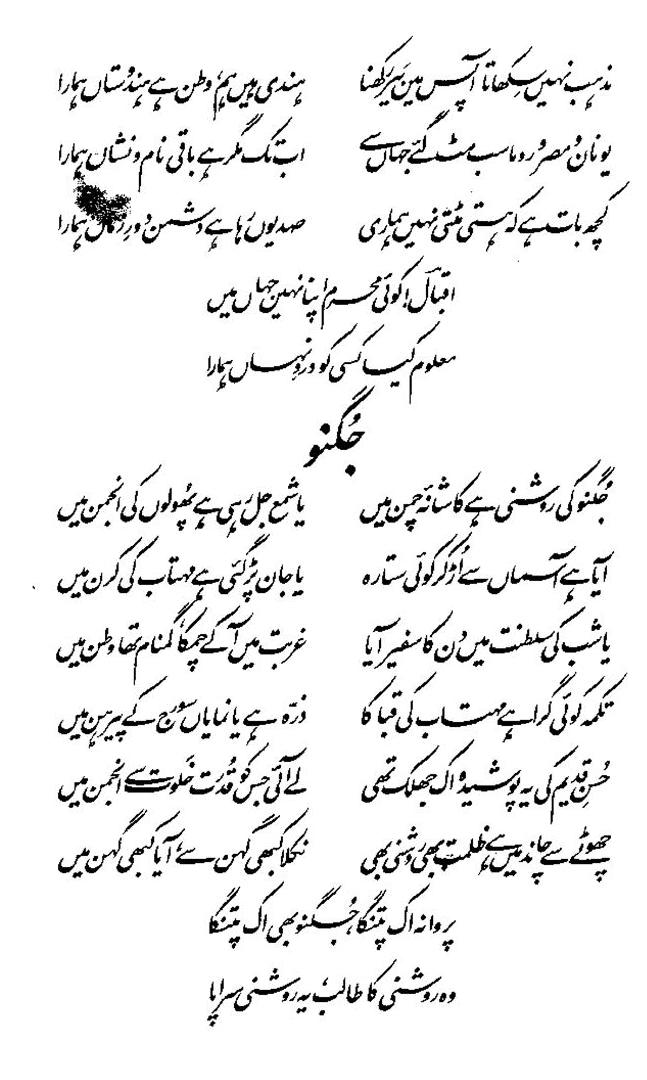 مذہب نہیں سکھاتا آپس میں بیر رکھنا ہندی ہیں ہم، وطن ہے ہندوستاں ہمارا
یونان و مصر و روما سب مٹ گئے جہاں سے اب تک مگر ہے باقی نام و نشاں ہمارا
کچھ بات ہے کہ ہستی مٹتی نہیں ہماری صدیوں رہا ہے دشمن دورِ زماں ہمارا
اقبالؔ! کوئی محرم اپنا نہیں جہاں میں
معلوم کیا کسی کو دردِ نہاں ہمارا
جُگنو
جُگنو کی روشنی ہے کاشانۂ چمن میں یا شمع جل رہی ہے پھُولوں کی انجمن میں
آیا ہے آسماں سے اُڑ کر کوئی ستارہ یا جان پڑ گئی ہے مہتاب کی کرن میں
یا شب کی سلطنت میں دن کا سفیر آیا غربت میں آ کے چمکا، گمنام تھا وطن میں
تکمہ کوئی گرا ہے مہتاب کی قبا کا ذرّہ ہے یا نمایاں سورج کے پیرہن میں
حُسنِ قدیم کی یہ پوشیدہ اک جھلک تھی لے آئی جس کو قُدرت خَلوت سے انجمن میں
چھوٹے سے چاند میں ہے ظلمت بھی روشنی بھی نکلا کبھی گہن سے، آیا کبھی گہن میں
پروانہ اک پتنگا، جُگنو بھی اک پتنگا
وہ روشنی کا طالب، یہ روشنی سراپا